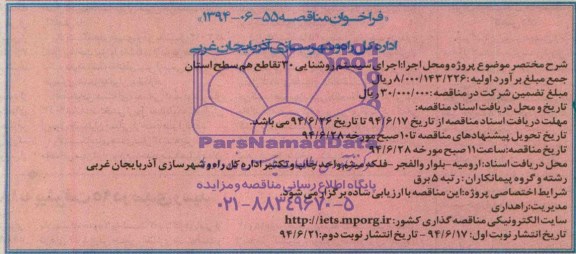 «فراخوان مناقصه ۵۵-۰۶-۱۳۹۴»
اداره کل راه و شهرسازی آذربایجان غربی
شرح مختصر موضوع پروژه و محل اجرا: اجرای سیستم روشنایی ۳۰ تقاطع هم سطح استان
جمع مبلغ برآورد اولیه: ۸/۰۰۰/۱۴۳/۲۲۶ ریال
مبلغ تضمین شرکت در مناقصه: ۳۰/۰۰۰/۰۰۰ ریال
تاریخ و محل دریافت اسناد مناقصه:
مهلت دریافت اسناد مناقصه از تاریخ ۹۴/۶/۱۷ تا تاریخ ۹۴/۶/۲۶ می باشد.
تاریخ تحویل پیشنهادهای مناقصه تا ۱۰ صبح مورخه ۹۴/۶/۲۸
تاریخ مناقصه: ساعت ۱۱ صبح مورخه ۹۴/۶/۲۸
محل دریافت اسناد: ارومیه - بلوار والفجر - فلکه میثم واحد چاپ و تکثیر اداره کل راه و شهرسازی آذربایجان غربی
رشته و گروه پیمانکاران: رتبه ۵ برق
شرایط اختصاصی پروژه: این مناقصه با ارزیابی ساده برگزار می شود.
مدیریت: راهداری
سایت الکترونیکی مناقصه گذاری کشور: http://iets.mporg.ir
تاریخ انتشار نوبت اول: ۹۴/۶/۱۷ - تاریخ انتشار نوبت دوم: ۹۴/۶/۲۱
ParsNamadData
پایگاه اطلاع رسانی مناقصه و مزایده
۰۲۱-۸۸۳۴۹۶۷۰-۵